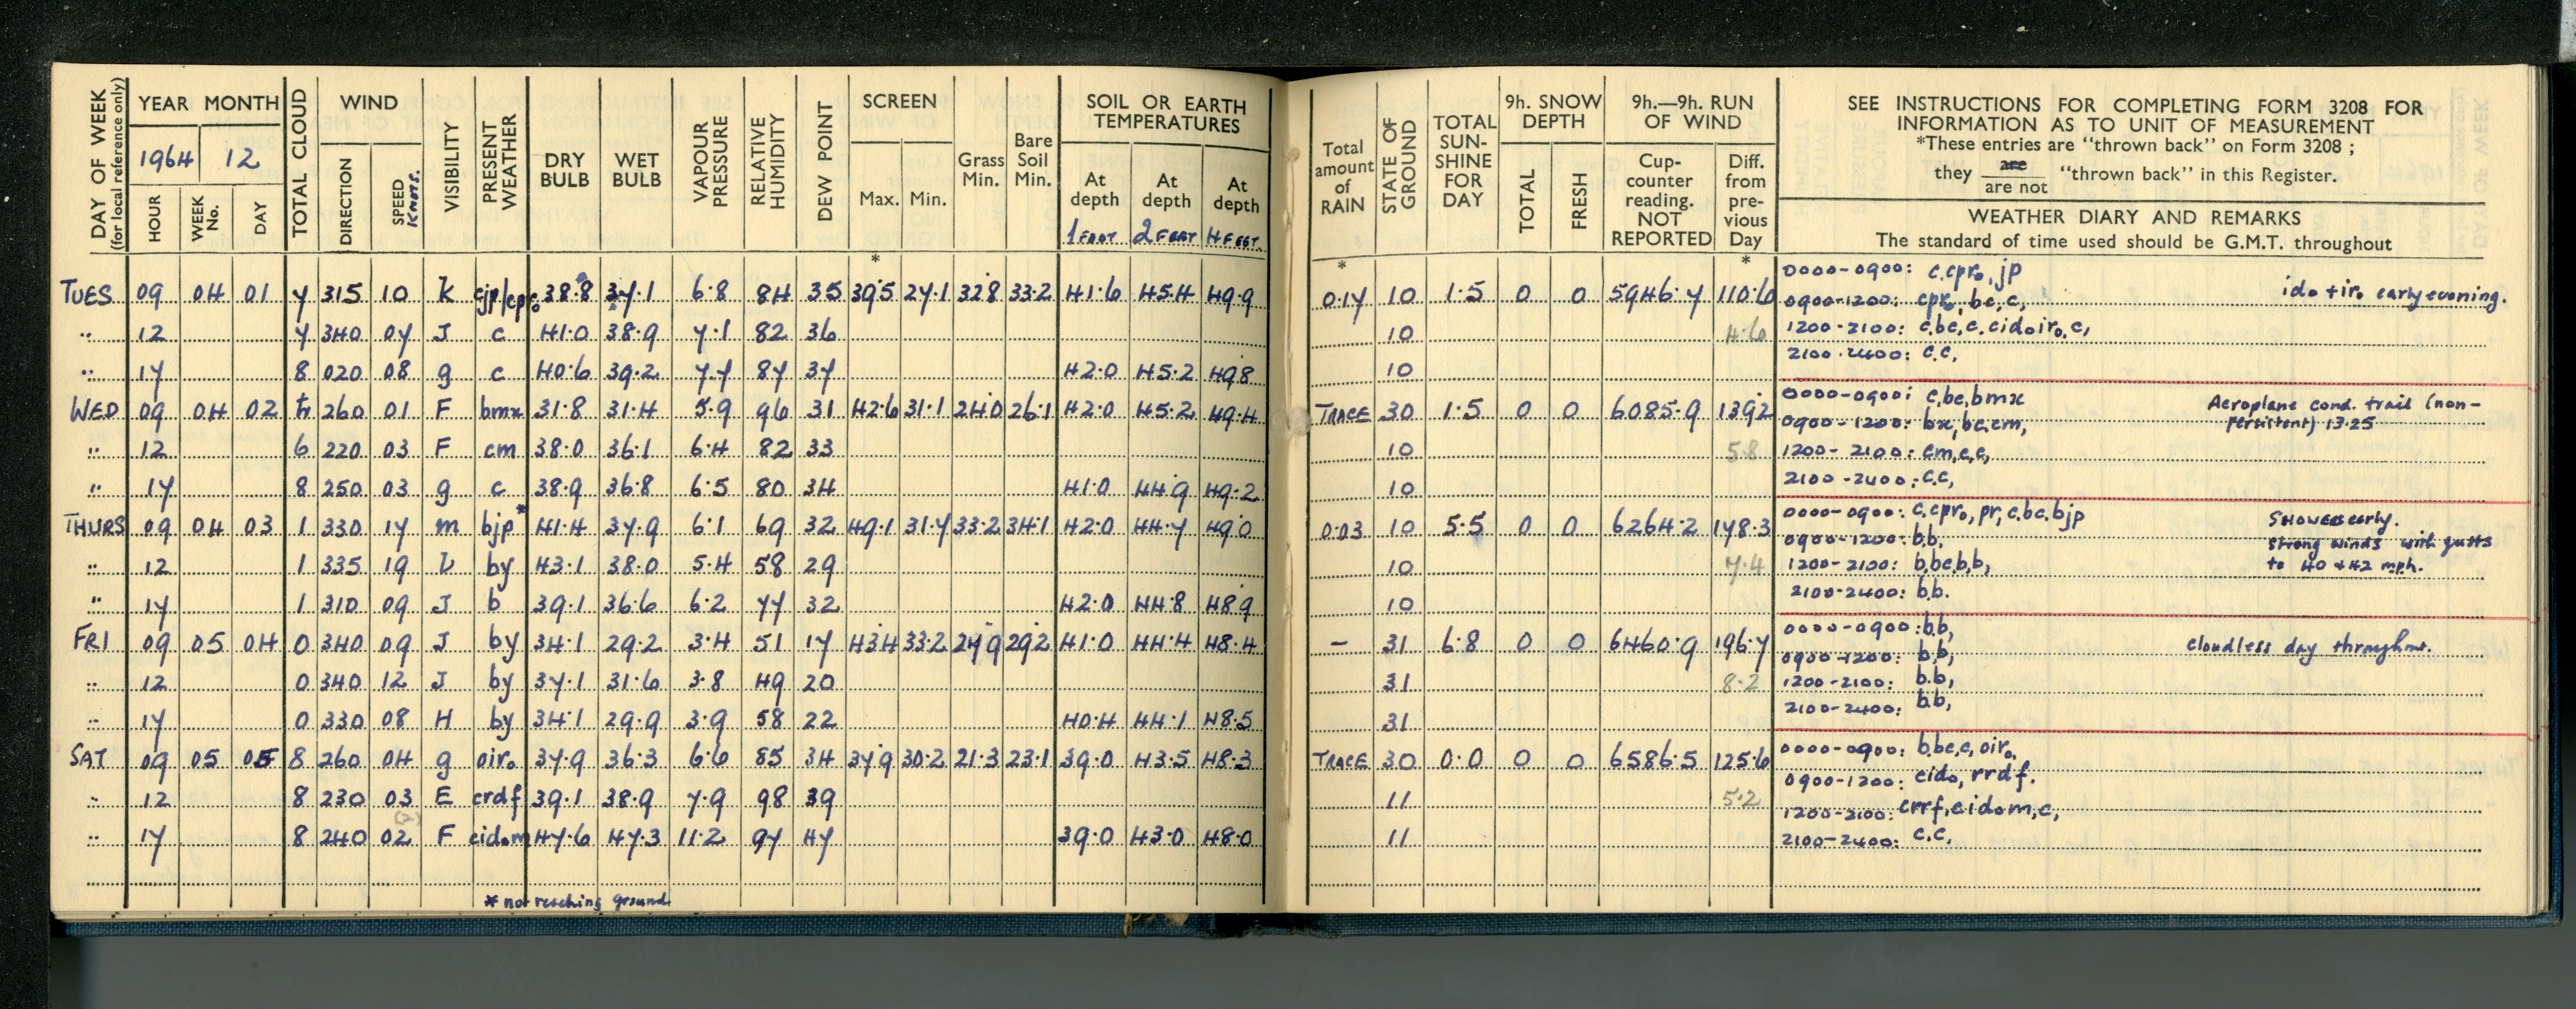 DAY OF WEEK (for local reference only)
YEAR MONTH
1964 12
HOUR WEEK No. DAY
TOTAL CLOUD
WIND
DIRECTION SPEED KNOTS.
VISIBILITY
PRESENT WEATHER
DRY BULB
WET BULB
VAPOUR PRESSURE
RELATIVE HUMIDITY
DEW POINT
SCREEN
Max. Min.
Grass Min.
Bare Soil Min.
SOIL OR EARTH TEMPERATURES
At depth 1 FOOT At depth 2 FEET At depth 4 FEET.
Total amount of RAIN
STATE OF GROUND
TOTAL SUN-SHINE FOR DAY
9h. SNOW DEPTH
TOTAL FRESH
9h.—9h. RUN OF WIND
Cup-counter reading. NOT REPORTED
Diff. from pre-vious Day
SEE INSTRUCTIONS FOR COMPLETING FORM 3208 FOR
INFORMATION AS TO UNIT OF MEASUREMENT
*These entries are "thrown back" on Form 3208 ;
they are / are not "thrown back" in this Register.
WEATHER DIARY AND REMARKS
The standard of time used should be G.M.T. throughout
* * *
TUES 09 04 01 7 315 10 K cjp/cpr₀ 38.8 37.1 6.8 84 35 39.5 27.1 32.8 33.2 41.6 45.4 49.9 0.17 10 1.5 0 0 5946.7 110.6
0000-0900: c.cpr₀,jp
0900-1200: cpr₀,bc,c,
id₀+ir₀ early evening.
" 12 7 340 07 J c 41.0 38.9 7.1 82 36 10 4.6 1200-2100: c,bc,c.cid₀ir₀,c,
" 17 8 020 08 g c 40.6 39.2 7.7 87 37 42.0 45.2 49.8 10 2100-2400: c.c,
WED 09 04 02 tr 260 01 F bmx 31.8 31.4 5.9 96 31 42.6 31.1 24.0 26.1 42.0 45.2 49.4 TRACE 30 1.5 0 0 6085.9 139.2
0000-0900: c,bc,bmx
0900-1200: bx,bc,cm,
Aeroplane cond. trail (non-
persistent) 13.25
" 12 6 220 03 F cm 38.0 36.1 6.4 82 33 10 5.8 1200-2100: cm,c,c,
" 17 8 250 03 g c 38.9 36.8 6.5 80 34 41.0 44.9 49.2 10 2100-2400: c,c,
THURS 09 04 03 1 330 17 m bjp* 41.4 37.9 6.1 69 32 49.1 31.7 33.2 34.1 42.0 44.7 49.0 0.03 10 5.5 0 0 6264.2 178.3
0000-0900: c.cpr₀,pr,c.bc.bjp
0900-1200: b,b,
Showers early.
Strong winds with gusts
to 40 & 42 mph.
" 12 1 335 19 L by 43.1 38.0 5.4 58 29 10 7.4 1200-2100: b,bc,b,b,
" 17 1 310 09 J b 39.1 36.6 6.2 77 32 42.0 44.8 48.9 10 2100-2400: b,b.
FRI 09 05 04 0 340 09 J by 34.1 29.2 3.4 51 17 43.4 33.2 27.9 29.2 41.0 44.4 48.4 — 31 6.8 0 0 6460.9 196.7
0000-0900: b,b,
0900-1200: b,b,
Cloudless day throughout.
" 12 0 340 12 J by 37.1 31.6 3.8 49 20 31 8.2 1200-2100: b.b,
" 17 0 330 08 H by 34.1 29.9 3.9 58 22 40.4 44.1 48.5 31 2100-2400: b,b,
SAT 09 05 05 8 260 04 g oir₀ 37.9 36.3 6.6 85 34 37.9 30.2 21.3 23.1 39.0 43.5 48.3 TRACE 30 0.0 0 0 6586.5 125.6
0000-0900: b,bc,c,oir₀,
0900-1200: cid₀, rrdf.
" 12 8 230 03 E crdf 39.1 38.9 7.9 98 39 11 5.2 1200-2100: crrf,cid₀m,c,
" 17 8 240 02 (2) F cid₀m 47.6 47.3 11.2 97 47 39.0 43.0 48.0 11 2100-2400: c.c,
* not reaching ground